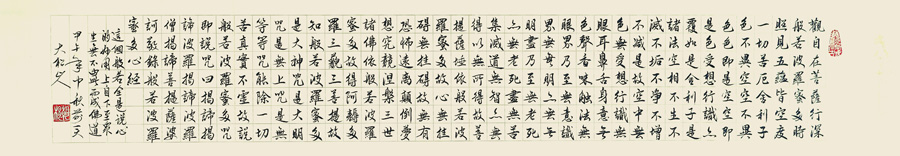 觀自在菩薩行深
般若波羅蜜多時
照見五蘊皆空度
一切苦厄舍利子
色不異空空不異
色色即是空空即
是色受想行識亦
復如是舍利子是
諸法空相不生不
滅不垢不淨不增
不減是故空中無
色無受想行識無
眼耳鼻舌身意無
色聲香味觸法無
眼界乃至無意識
界無無明亦無無
明盡乃至無老死
亦無老死盡無苦
集滅道無智亦無
得以無所得故菩
提薩埵依般若波
羅蜜多故心無罣
礙無罣礙故無有
恐怖遠離顛倒夢
想究竟涅槃三世
諸佛依般若波羅
蜜多故得阿耨多
羅三藐三菩提故
知般若波羅蜜多
是大神咒是大明
咒是無上咒是無
等等咒能除一切
苦真實不虛故說
般若波羅蜜多咒
即說咒曰揭諦揭
諦波羅揭諦波羅
僧揭諦菩提薩婆
訶敬錄般若波羅
蜜多心經
這個般若全是說心
的妙用上自下至眾
生無不成佛道
甲午年中秋前一天